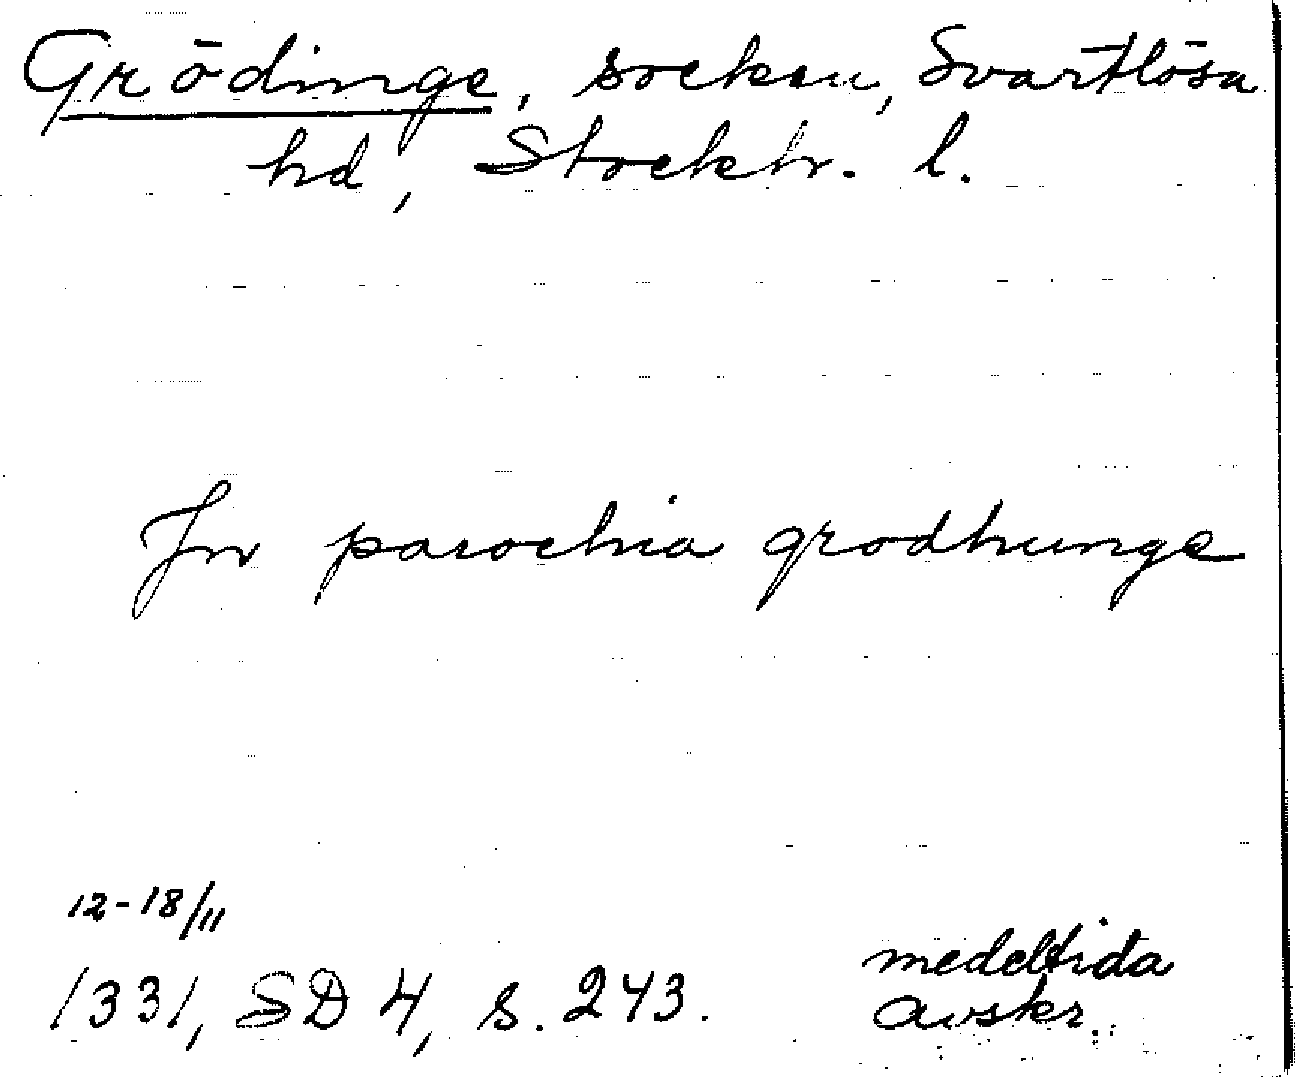 Grödinge, socken, Svartlösa
hd, Stockh. l.
In parochia grodhunge
12-18/11
1331, SD 4, s. 243.
medeltida
avskr.